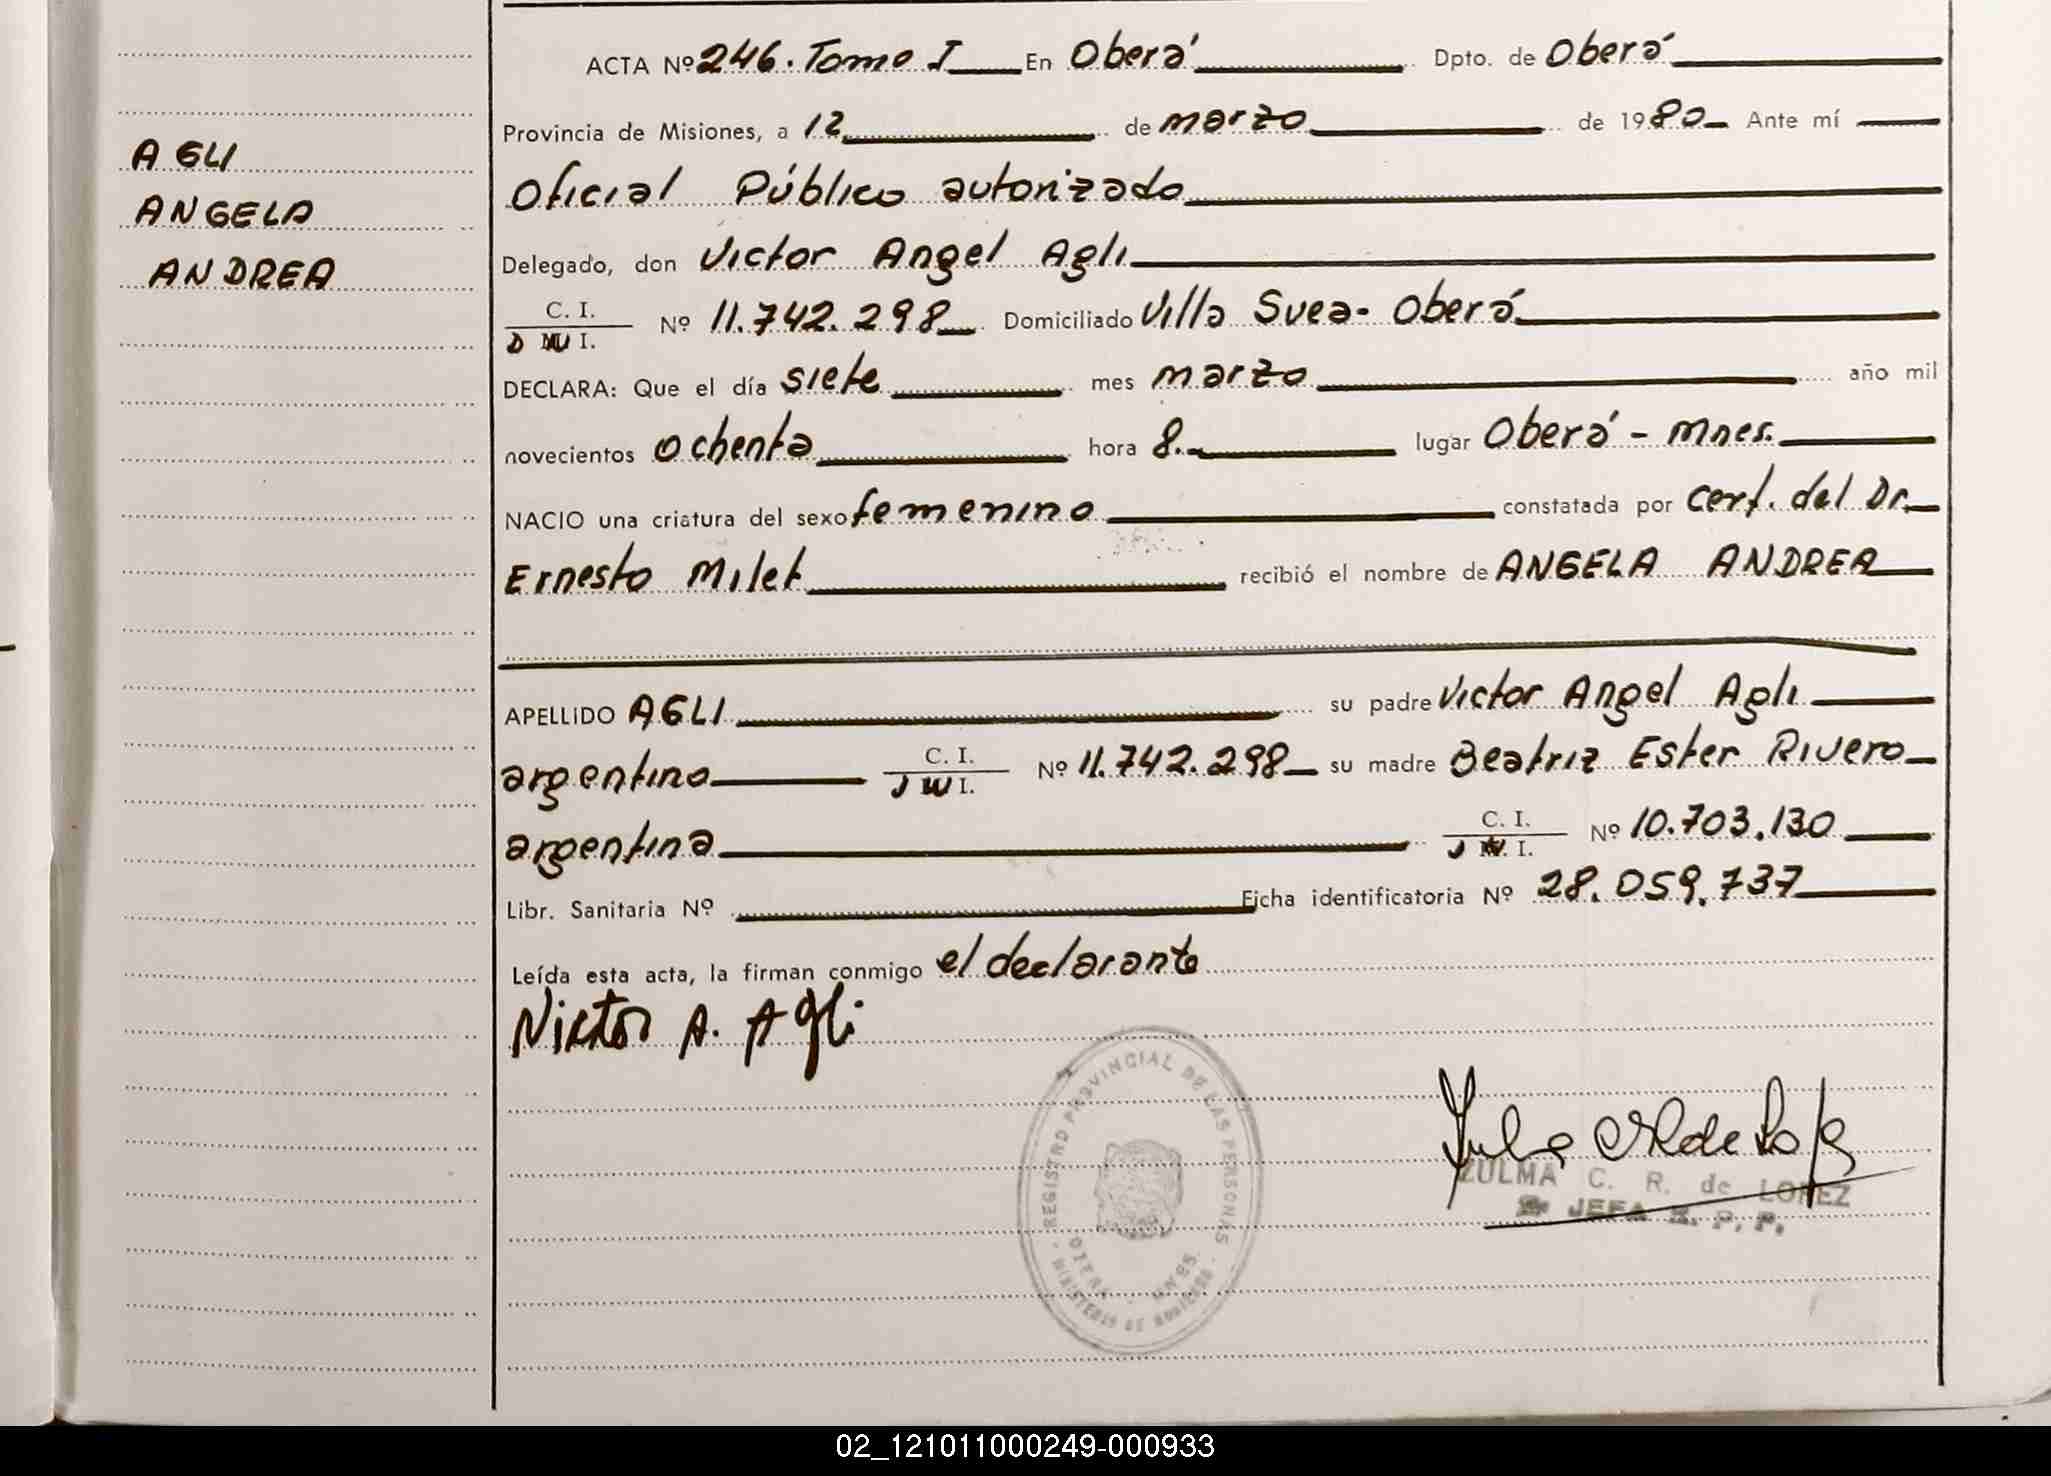 ACTA Nº 246. Tomo I En Oberá Dpto. de Oberá
Provincia de Misiones, a 12 de marzo de 1980 Ante mí
AGLI
ANGELA
ANDREA
Oficial Público autorizado
Delegado, don Victor Angel Agli
C. I.
Nº 11.742.298 Domiciliado Villa Svea - Oberá
D N I.
DECLARA: Que el día siete mes marzo año mil
novecientos ochenta hora 8. lugar Oberá - Mnes.
NACIO una criatura del sexo femenino constatada por Cert. del Dr.
Ernesto Milet recibió el nombre de ANGELA ANDREA
APELLIDO AGLI su padre Victor Angel Agli
argentino C. I. Nº 11.742.298 su madre Beatriz Ester Rivero
argentina C. I. Nº 10.703.130
Libr. Sanitaria Nº Ficha identificatoria Nº 28.059.737
Leída esta acta, la firman conmigo el declarante
Victor A. Agli
REGISTRO PROVINCIAL DE LAS PERSONAS
MINISTERIO DE GOBIERNO
ZULMA C. R. de LOPEZ
JEFA R. P. P.
02_121011000249-000933